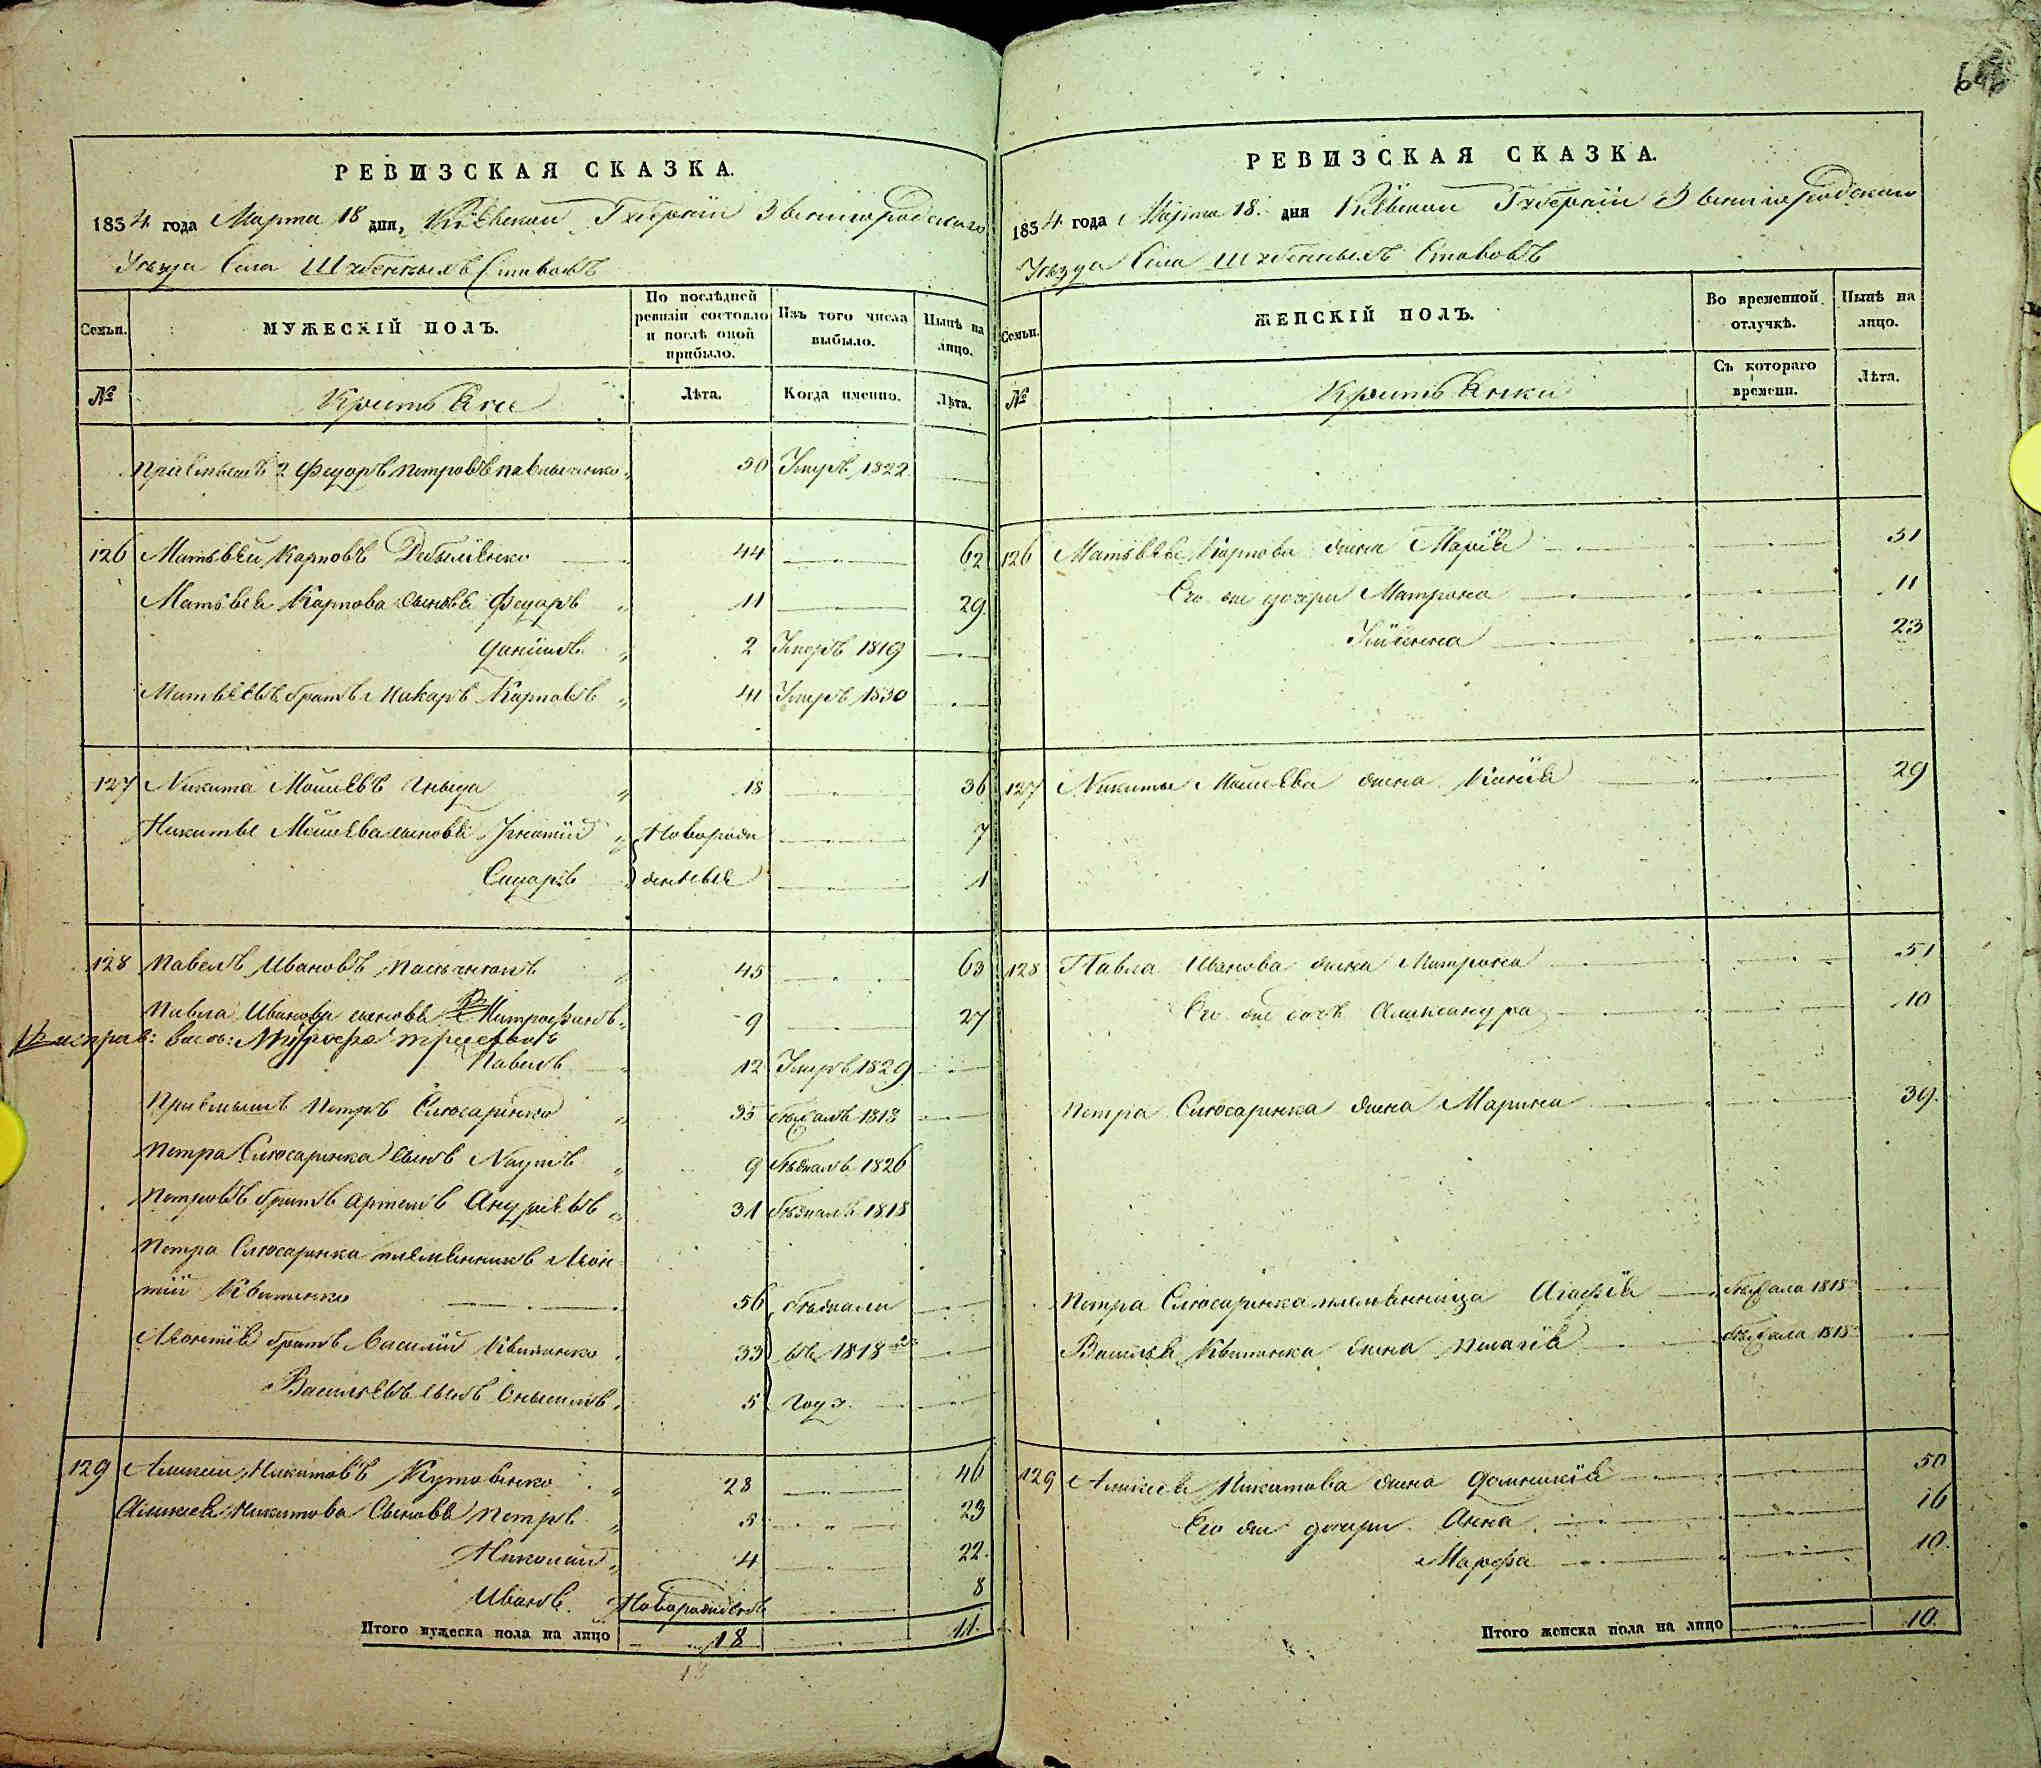 РЕВИЗСКАЯ СКАЗКА.
1834 года Марта 18 дня, Кіевской Губерніи Звенигородскаго
Уезда Села Шубенныхъ Ставовъ
Семьи.
МУЖЕСКІЙ ПОЛЪ.
По послѣдней ревизіи состояло и послѣ оной прибыло.
Изъ того числа выбыло.
Нынѣ на лицо.
№
Крестьяне
Лѣта.
Когда именно.
Лѣта.
2 Федоръ Петровъ 50 Умеръ 1822
126 Матвѣй Карповъ 44 62
Матвѣя Карпова сыновья Федоръ 11 29
Данило 2 Умеръ 1819
Матвѣевъ братъ Макаръ Карповъ 41 Умеръ 1830
127 Никита Моисѣевъ Гныда 18 36
Никиты Моисѣева сыновья Игнатій Новорож 7
Сидоръ денные 1
128 Павелъ Ивановъ 45 63
Павла Иванова сыновья Митрофанъ 9 27
Павелъ 12 Умеръ 1829
Пріемышъ Петръ Слюсаренко 35 бѣжалъ 1813
Петра Слюсаренка сынъ Наумъ 9 бѣжалъ 1826
Петровъ братъ Артемъ Андреевъ 31 бѣжалъ 1818
Петра Слюсаренка племянникъ Леон
тій Квитенко 56 бѣжали
Леонтія братъ Василій Квитенко 33 въ 1818
Васильевъ сынъ Онысимъ 5 году
129 Алексѣй Никитовъ Кутовенко 28 46
Алексея Никитова Сыновья Петръ 5 23
Николай 4 22
Иванъ Новорожденъ 8
Итого мужеска пола на лицо 18 11.
РЕВИЗСКАЯ СКАЗКА.
1834 года Марта 18. дня Кіевской Губерніи Звенигородскаго
Уезда Села Шубенныхъ Ставовъ
Семьи.
ЖЕНСКІЙ ПОЛЪ.
Во временной отлучкѣ.
Нынѣ на лицо.
№
Крестьянки
Съ котораго времени.
Лѣта.
126 Матвѣя Карпова жена Марія 51
Его же дочери Матрона 11
Уліянна 23
127 Никиты Моисѣева жена Ксенія 29
128 Павла Иванова жена Матрона 51
Его же дочь Александра 10
Петра Слюсаренка жена Марина 39.
Петра Слюсаренка племянница Агафія бѣжала 1818
Василья Квитенка жена Пелагія бѣжала 1818
129 Алексея Никитова жена Домникія 50
Его же дочери Анна 16
Марфа 10.
Итого женска пола на лицо 10.